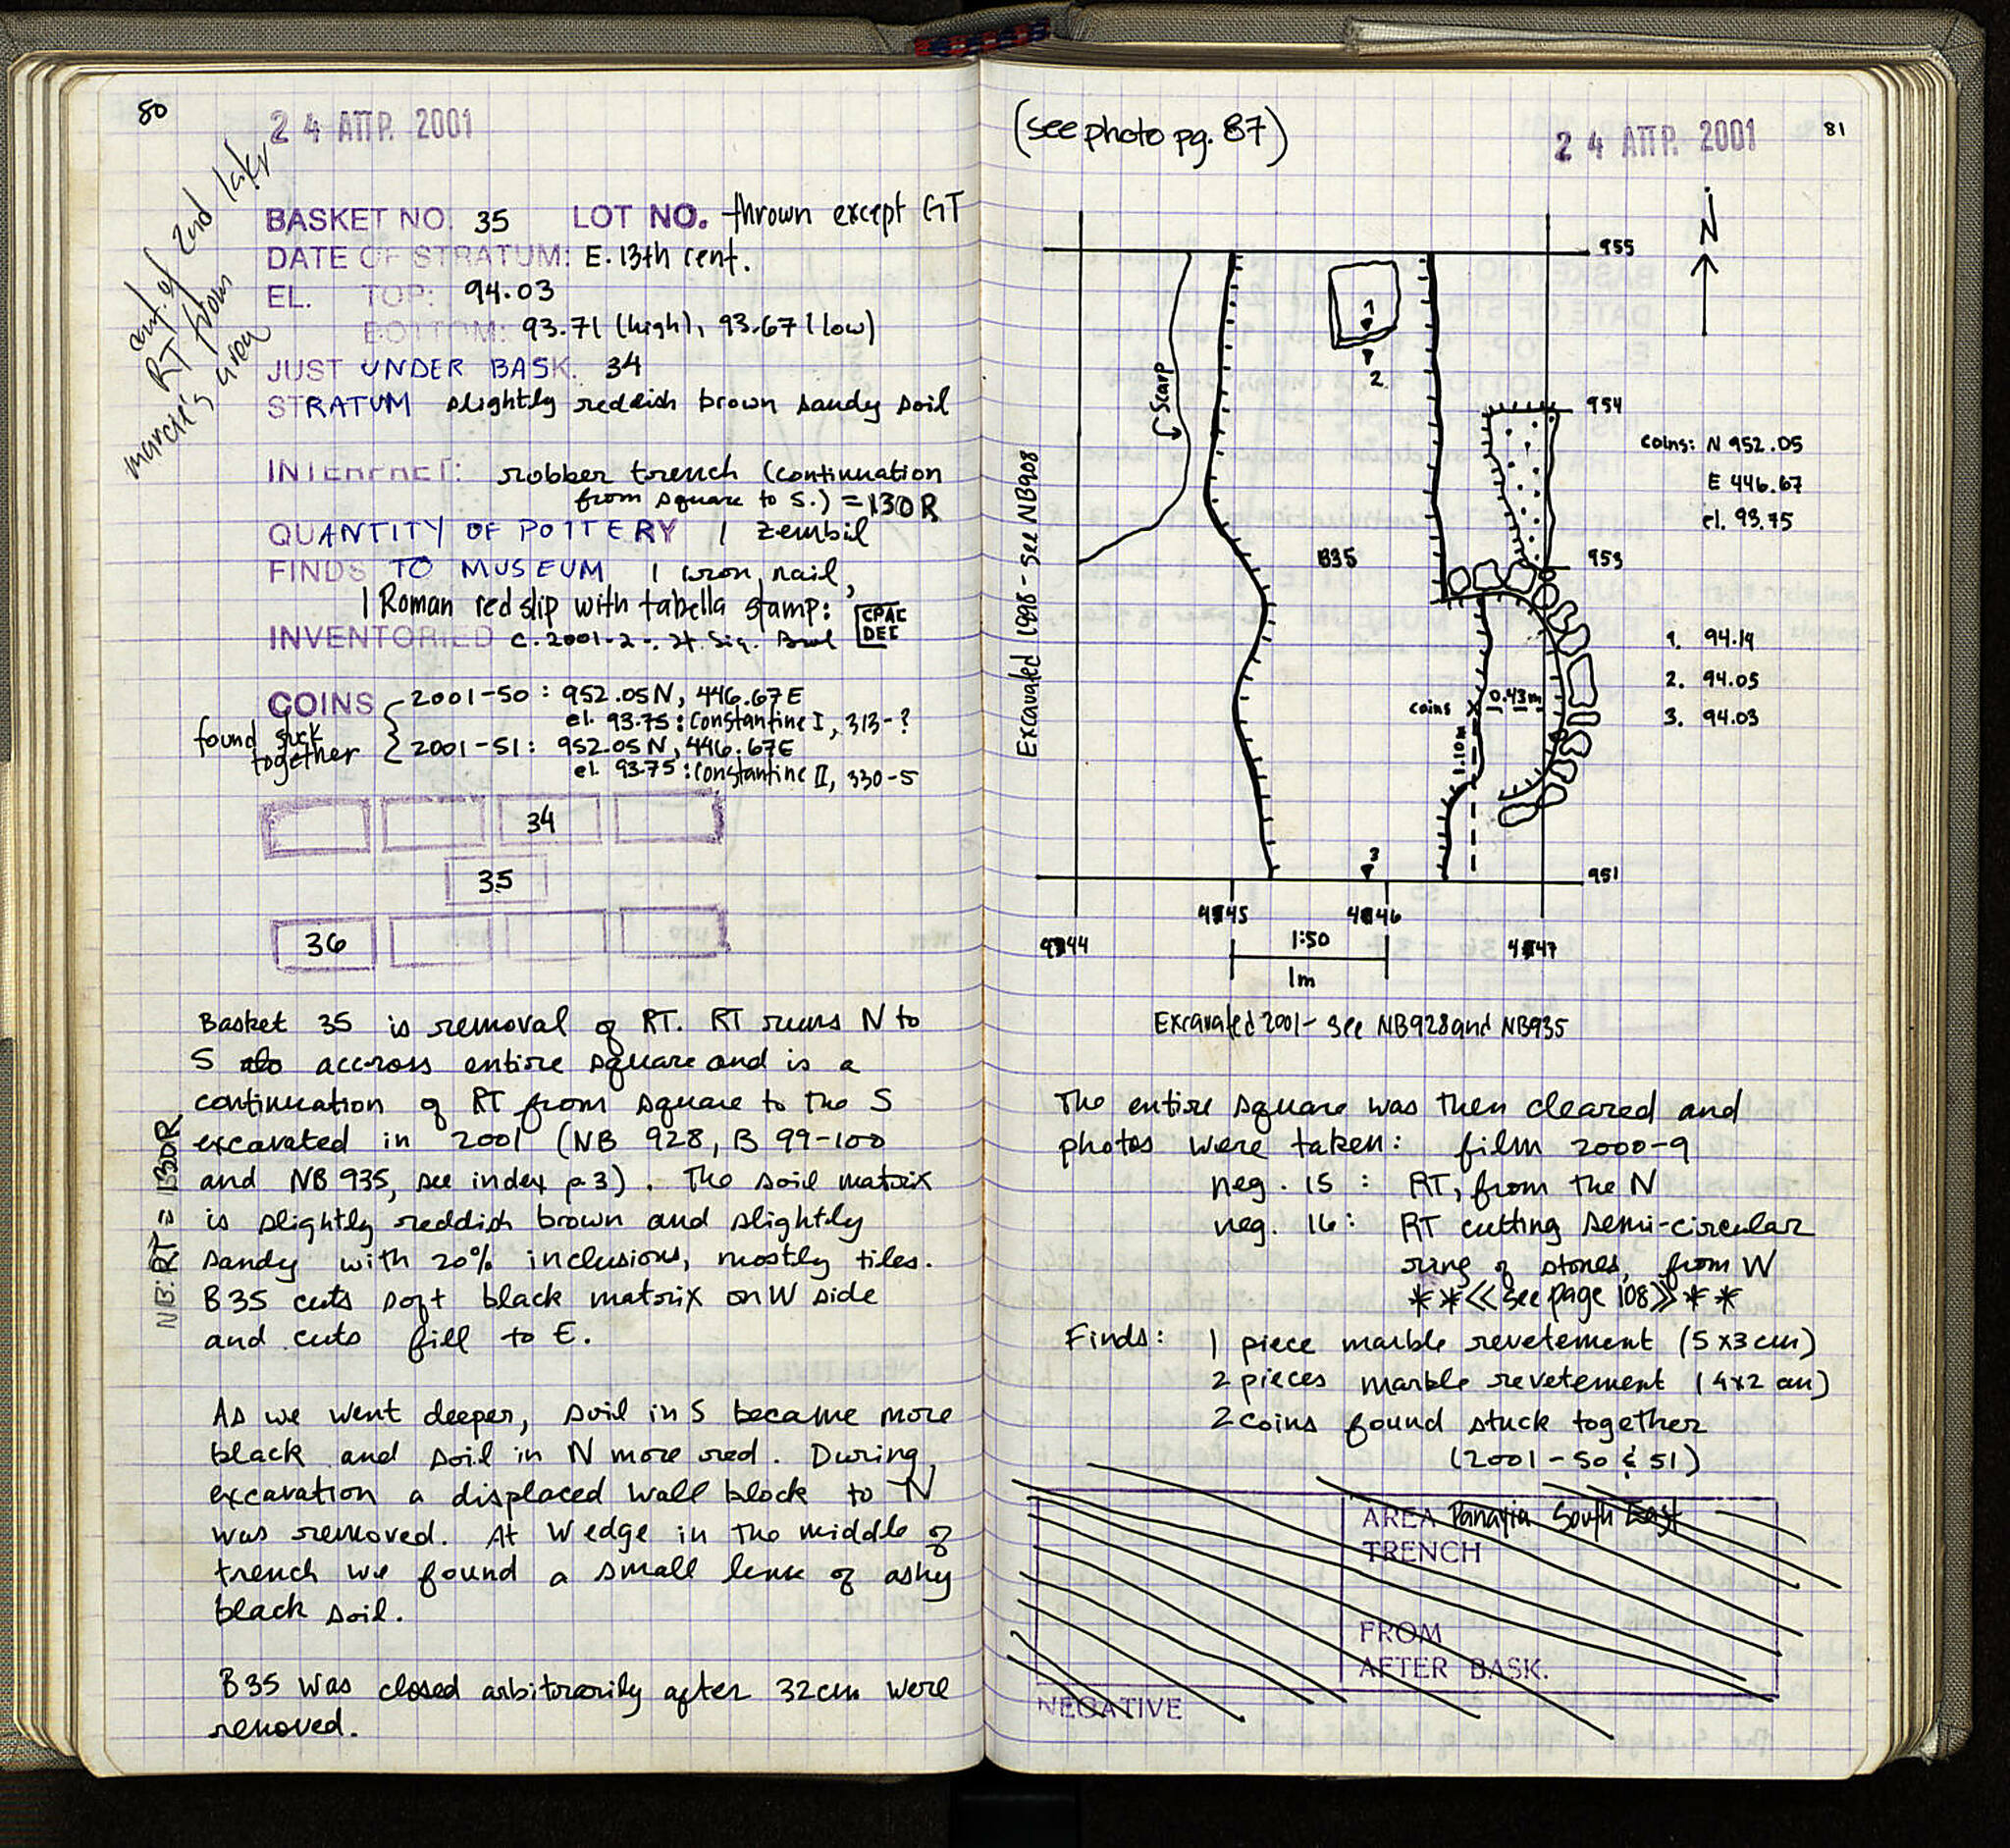 80
24 ΑΠΡ. 2001
cont. of 2nd later
RT from
marcie's area
BASKET NO. 35 LOT NO. thrown except GT
DATE OF STRATUM: E. 13th cent.
EL. TOP: 94.03
BOTTOM: 93.71 (high), 93.67 (low)
JUST UNDER BASK. 34
STRATUM slightly reddish brown sandy soil
INTERPRET: robber trench (continuation
from square to S.) = 130R
QUANTITY OF POTTERY 1 zembil
FINDS TO MUSEUM 1 iron nail,
1 Roman red slip with tabella stamp: CPAC
DEC
INVENTORIED C. 2001-2: It. Sig. Bowl
COINS
found stuck
together
2001-50: 952.05N, 446.67E
el. 93.75: Constantine I, 313-?
2001-51: 952.05N, 446.67E
el. 93.75: Constantine II, 330-5
34
35
36
Basket 35 is removal of RT. RT runs N to
S accross entire square and is a
continuation of RT from square to the S
excavated in 2001 (NB 928, B 99-100
and NB 935, see index p 3). The soil matrix
is slightly reddish brown and slightly
sandy with 20% inclusions, mostly tiles.
B35 cuts soft black matrix on W side
and cuts fill to E.
NB: RT = 130R
As we went deeper, soil in S became more
black and soil in N more red. During
excavation a displaced wall block to N
was removed. At W edge in the middle of
trench we found a small lens of ashy
black soil.
B35 was closed arbitrarily after 32cm were
removed.
(see photo pg. 87)
24 ΑΠΡ. 2001
81
N
955
1
2
Scarp
954
coins: N 952.05
E 446.67
el. 93.75
Excavated 1998 - see NB908
B35
953
1. 94.19
2. 94.05
3. 94.03
coins X 0.43m
1.10m
3
951
445
446
944
1:50
447
1m
Excavated 2001 - see NB928 and NB935
The entire square was then cleared and
photos were taken: film 2000-9
neg. 15: RT, from the N
neg. 16: RT cutting semi-circular
ring of stones, from W
**<<see page 108>>**
Finds: 1 piece marble revetement (5x3 cm)
2 pieces marble revetement (4x2 cm)
2 coins found stuck together
(2001-50 & 51)
AREA Panayia South East
TRENCH
FROM
AFTER BASK.
NEGATIVE